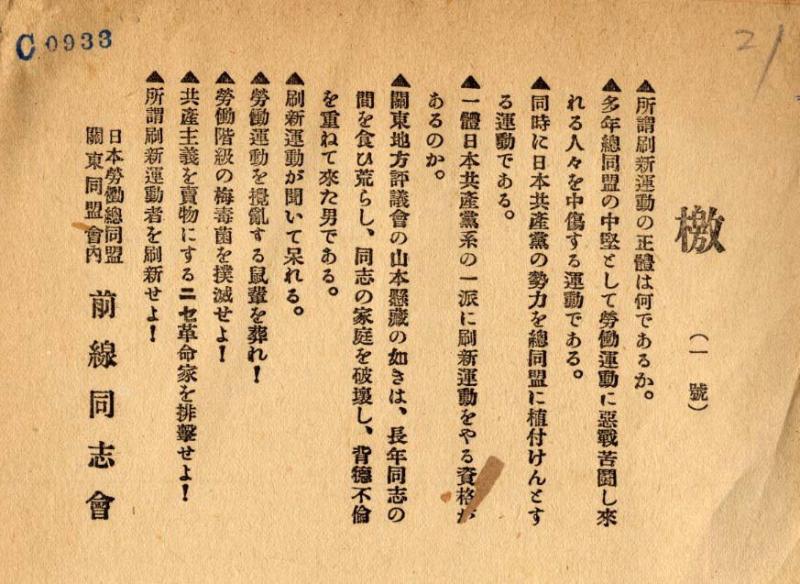 C 0933
21
檄
(一號)
▲所謂刷新運動の正體は何であるか。
▲多年總同盟の中堅として勞働運動に惡戰苦鬪し來
れる人々を中傷する運動である。
▲同時に日本共產黨の勢力を總同盟に植付けんとす
る運動である。
▲一體日本共產黨系の一派に刷新運動をやる資格が
あるのか。
▲關東地方評議會の山本懸藏の如きは、長年同志の
間を食ひ荒らし、同志の家庭を破壞し、背德不倫
を重ねて來た男である。
▲刷新運動が聞いて呆れる。
▲勞働運動を攪亂する鼠輩を葬れ!
▲勞働階級の梅毒菌を撲滅せよ!
▲共產主義を賣物にするニセ革命家を排擊せよ!
▲所謂刷新運動者を刷新せよ!
日本勞働總同盟
關東同盟會內
前線同志會